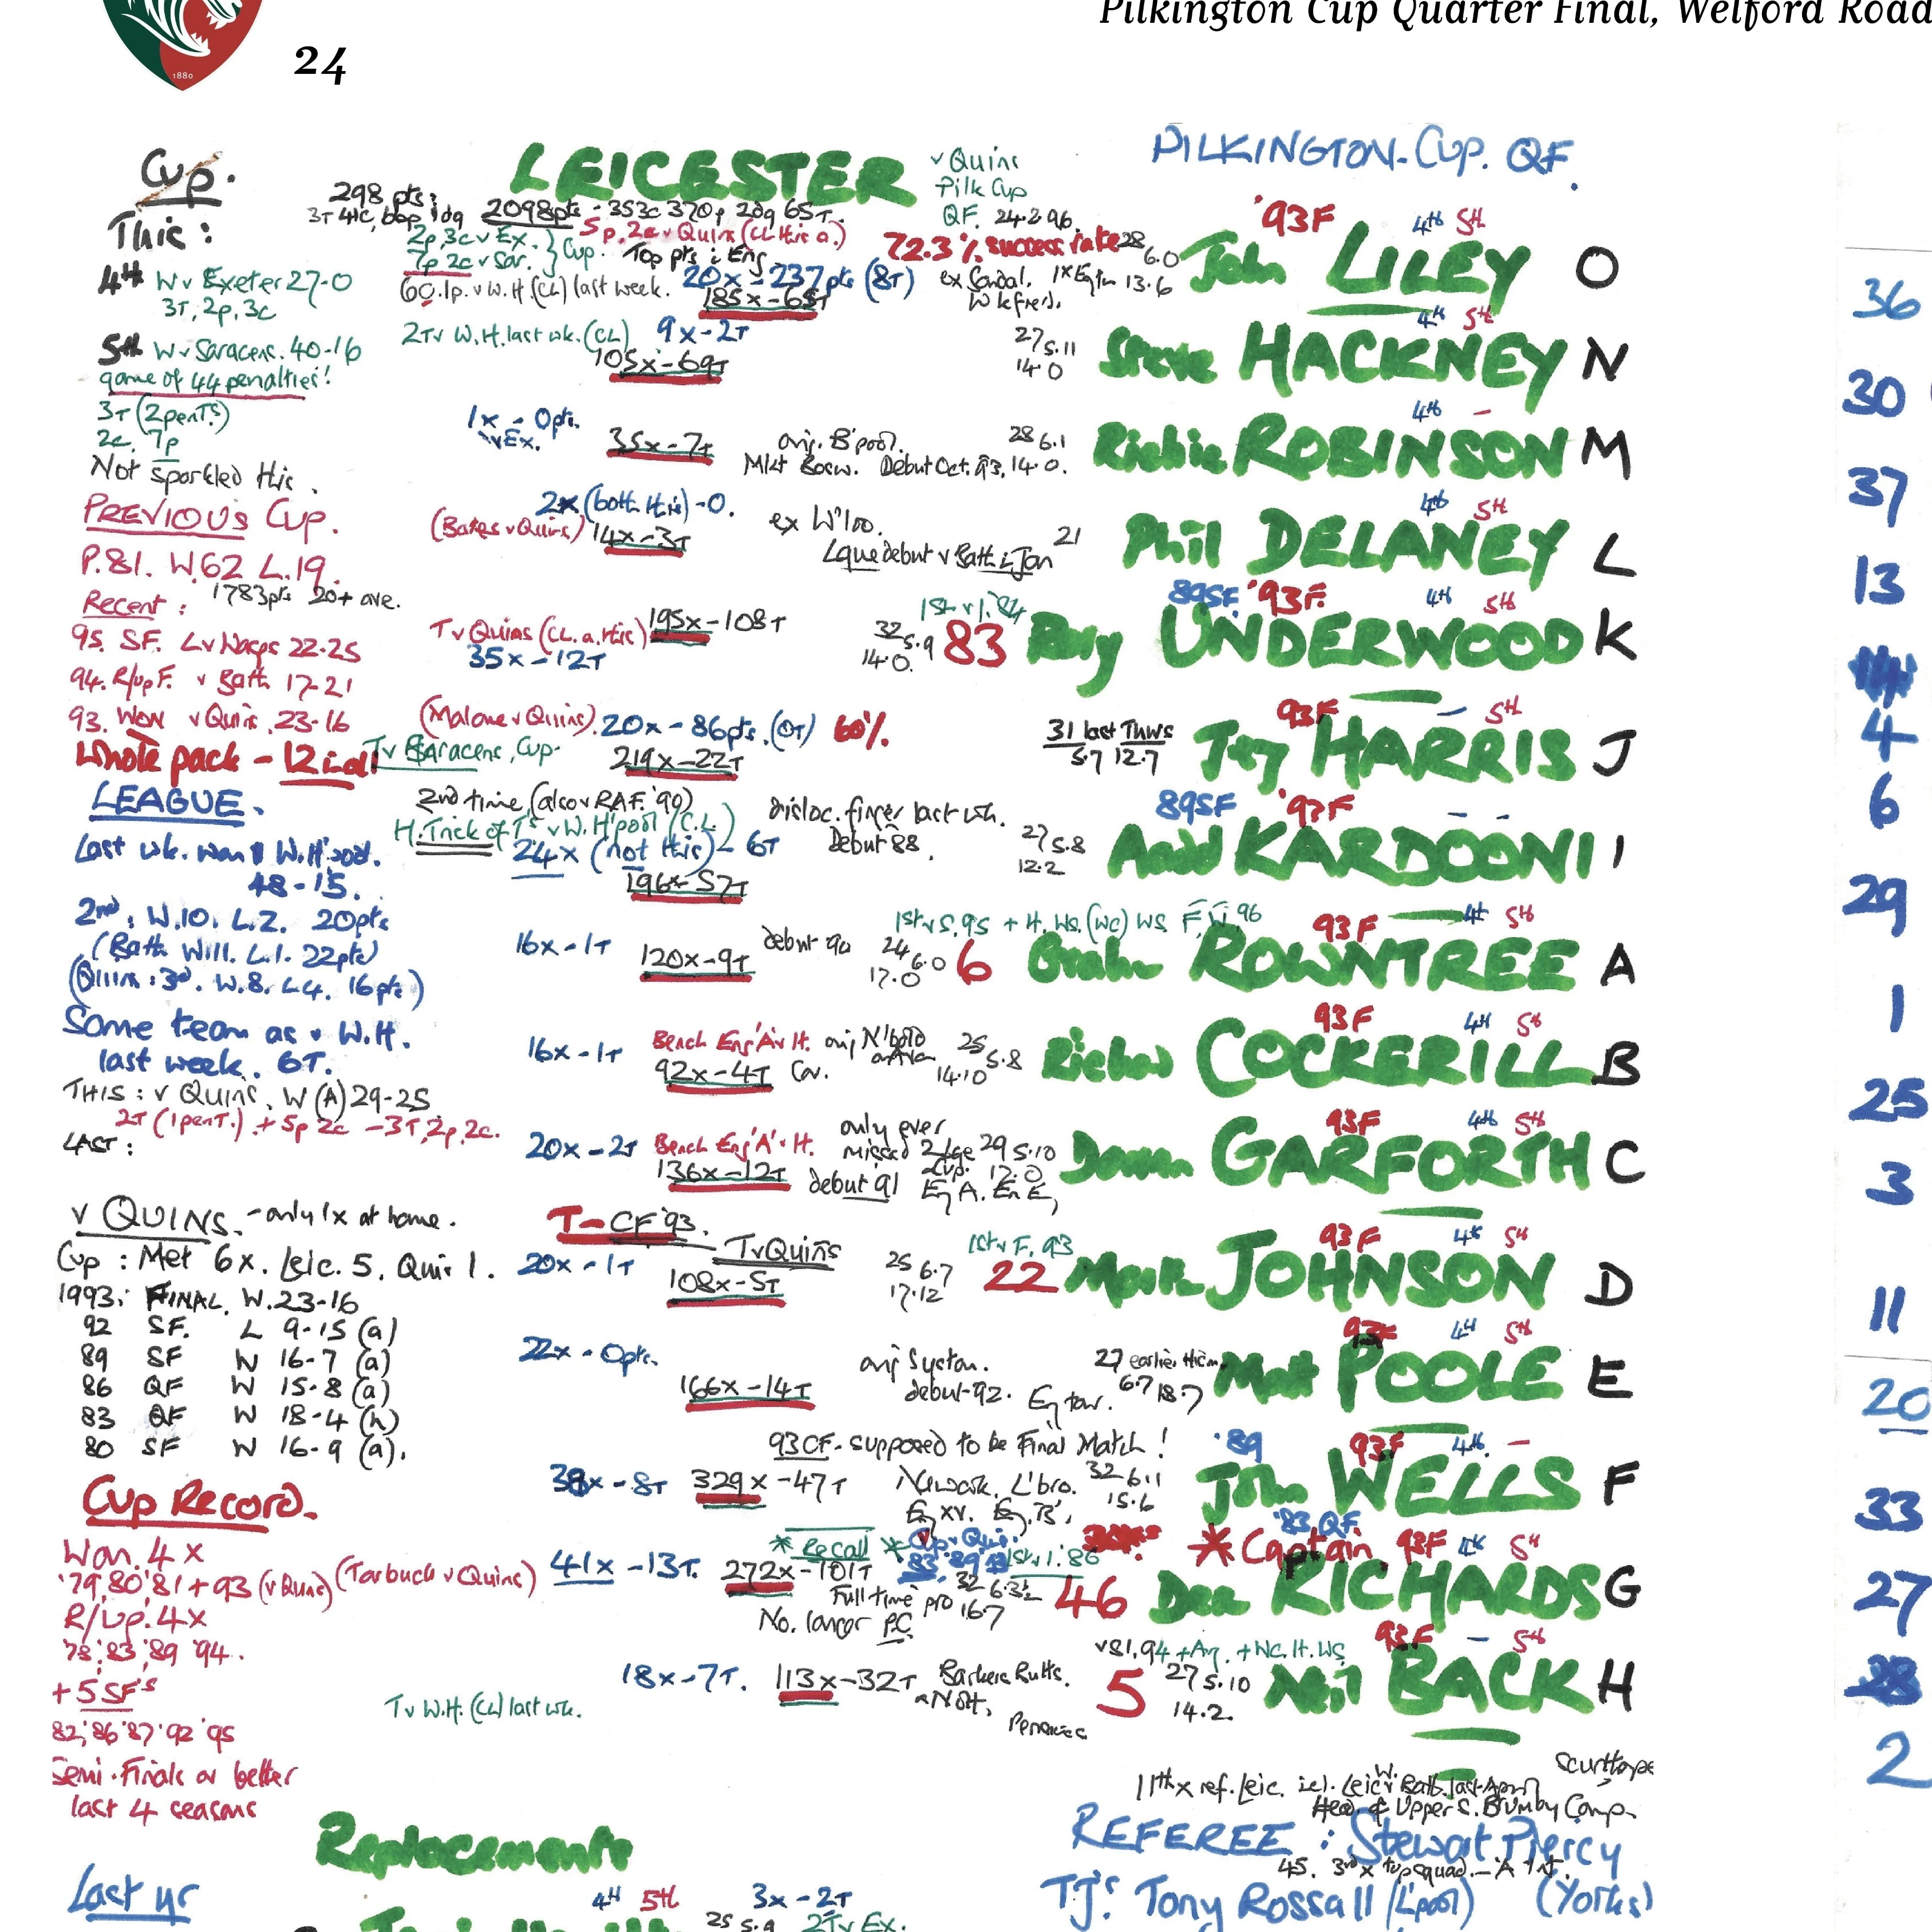 Pilkington Cup Quarter Final, Welford Road
1880
24
Cup.
This:
4th W v Exeter 27-0
3T, 2p, 3c
5th W v Saracens. 40-16
game of 44 penalties!
3T (2 penTs)
2c, 7p
Not sparkled this.
PREVIOUS Cup.
P.81. W.62 L.19.
1783pts 20+ ave.
Recent:
95. SF. L v Wasps 22-25
94. R/up F. v Bath 17-21
93. Won v Quins. 23-16
Whole pack - 12
LEAGUE.
Last wk. won W.H'pool.
48-15.
2nd, W.10. L.2. 20pts
(Bath W11. L.1. 22pts)
(Quins: 3rd. W.8. L4. 16pts)
Same team as v W.H.
last week. 6T.
THIS: v Quins. W (A) 29-25
2T (1 penT.) + 5p 2c - 3T, 2p, 2c.
LAST:
v QUINS. - only 1x at home.
Cup: Met 6x. Leic. 5. Quins 1.
1993: FINAL. W. 23-16
92 SF. L 9-15 (a)
89 SF W 16-7 (a)
86 QF W 15-8 (a)
83 QF W 18-4 (h)
80 SF W 16-9 (a).
Cup Record.
Won. 4x
'79,'80'81 + 93 (v Quins)
R/up. 4x
'78,'83,'89 '94.
+ 5 SF's
82,'86'87'92'95
Semi-Finals or better
last 4 seasons
Last yr
LEICESTER
v Quins
Pilk Cup
QF. 24.2.96.
PILKINGTON. Cup. QF.
298 pts:
2098pts - 353c 370p 2dg 65T.
5p, 2c v Quins (CL this a.)
2p, 3c v Ex.
7p 2c v Sar. } Cup.
Top pts in Eng
72.3% success rate
20x - 237pts (8T)
185x - 65T
v W.H (CL) last week.
ex Sandal.
Wkfield.
28 6.0
13.6
'93F 4th 5th
John LILEY O
2Tv W.H. last wk. (CL)
9x - 2T
105x - 69T
27 5.11
14.0
4th 5th
Steve HACKNEY N
1x - 0pts.
v Ex.
35x - 7T
orig. B'pool.
Mkt Bosw. Debut Oct. 93.
28 6.1
14.0.
4th -
Richie ROBINSON M
2x (both this) - 0.
(Bakes v Quins)
14x - 3T
ex W'loo.
Lgue debut v Bath in Jan
21
4th 5th
Phil DELANEY L
T v Quins (CL. a. this)
195x - 108T
35x - 12T
1st v I. '84
32 5.9
14.0.
83
89SF. '93F. 4th 5th
Rory UNDERWOOD K
(Malone v Quins).
20x - 86pts. (0T) 60%
Tv Saracens, Cup.
219x - 22T
31 last Thurs
5.7 12.7
93F - 5th
Jez HARRIS J
2nd time (also v RAF. '90)
H.Trick of T's v W.H'pool (C.L.)
24x (not this) - 6T
196x - 57T
disloc. finger last wk.
Debut 88.
27 5.8
12.2
89SF '93F - -
Aadel KARDOONI I
16x - 1T
120x - 9T
debut 90
1st v S.95 + It. WS. (WC) WS F, W, 96
24 6.0
17.0
6
93F 4th 5th
Graham ROWNTREE A
16x - 1T
Bench Eng 'A' v It.
92x - 4T
Cov.
25 5.8
14.10
93F 4th 5th
Richard COCKERILL B
20x - 2T
Bench Eng 'A' v It.
136x - 12T
debut 91
only ever
missed 2 lge
Cup.
29 5.10
17.0
93F 4th 5th
Darren GARFORTH C
T - CF '93.
Tv Quins
20x - 1T
108x - 5T
1st v F. 93
25 6.7
17.12
22
93F 4th 5th
Martin JOHNSON D
22x - 0pts.
166x - 14T
orig Syston.
debut-92.
Eng tour.
27 earlier this m.
6.7 18.7
93F 4th 5th
Matt POOLE E
93CF - supposed to be Final Match!
38x - 8T
329x - 47T
Newark. L'bro.
Eng XV. Eng 'B'.
32 6.1
15.6
'89 93F 4th. -
John WELLS F
(Tarbuck v Quins)
41x - 13T.
272x - 101T
* Recall *
Cup v Quins.
1st v I. '86
Full time pro
No. longer PC
32 6.3½
16.7
46
'83 QF
* Captain 93F 4th 5th
Dean RICHARDS G
Tv W.H. (CL) last wk.
18x - 7T.
113x - 32T
Barkers Butts.
Nott.
v S1, 94 + Arg. + WC. It. WS
27 5.10
14.2.
5
93F - 5th
Neil BACK H
Scunthorpe
11th x ref. Leic. W. Leic v Bath last April
Head of Upper S. Brumby Comp.
REFEREE: Stewart Piercy
45. 3rd x top squad.
TJ's: Tony Rossall (L'pool) (Yorks)
Replacements
4th 5th 3x - 2T
25 5.9 2Tv Ex.
36
30
37
13
4
6
29
1
25
3
11
20
33
27
28
2